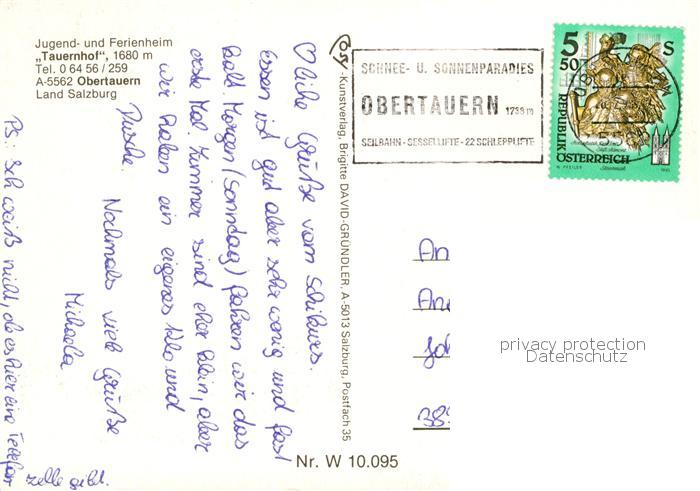 Jugend- und Ferienheim
„Tauernhof", 1680 m
Tel. 0 64 56 / 259
A-5562 Obertauern
Land Salzburg
♡liche Grüße vom Schikurs.
Essen ist gut aber sehr wenig und fast
kalt. Morgen (Sonntag) fahren wir das
erste Mal. Zimmer sind eher klein, aber
wir haben ein eigenes Klo und
Dusche.
Nochmals viele Grüße
Michaela
PS: Ich weiß nicht, ob es hier eine Telefon
zelle gibt.
-Kunstverlag, Brigitte DAVID-GRÜNDLER, A-5013 Salzburg, Postfach 35
Nr. W 10.095
SCHNEE- U. SONNENPARADIES
OBERTAUERN 1738 m
SEILBAHN-SESSELLIFTE-22 SCHLEPPLIFTE
5 S
50
REPUBLIK
ÖSTERREICH
An
privacy protection
Datenschutz